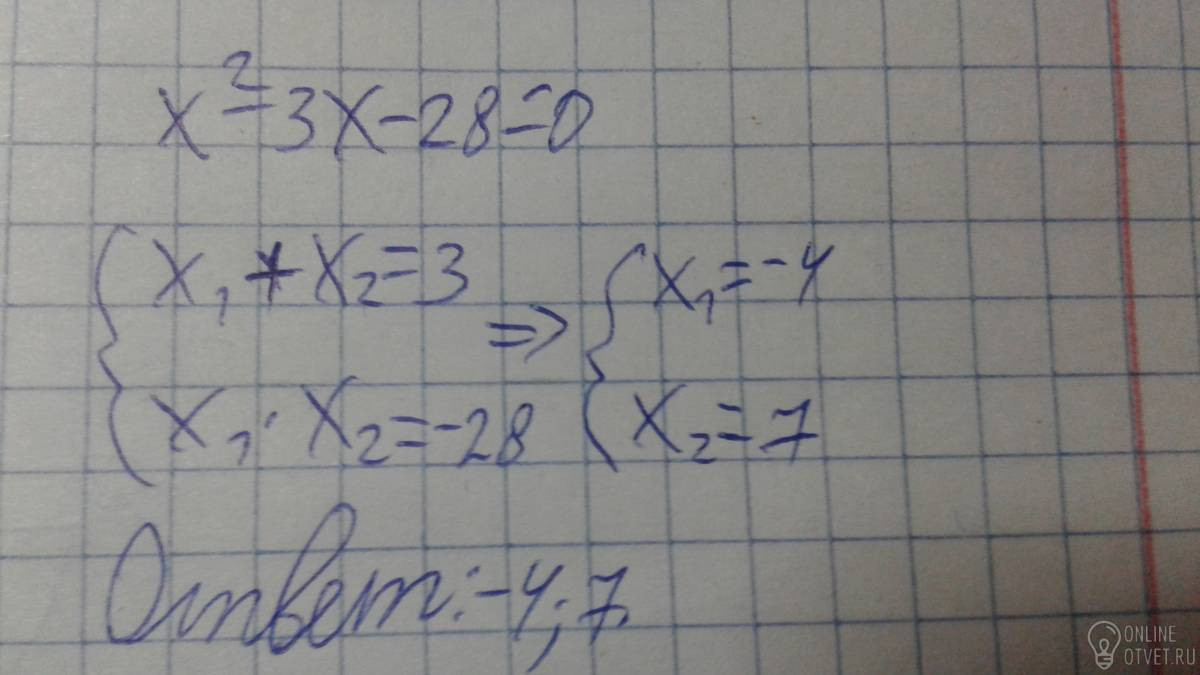 x²-3x-28=0
{x₁+x₂=3 => {x₁=-4
{x₁·x₂=-28 {x₂=7
Ответ:-4;7.
ONLINE
OTVET.RU